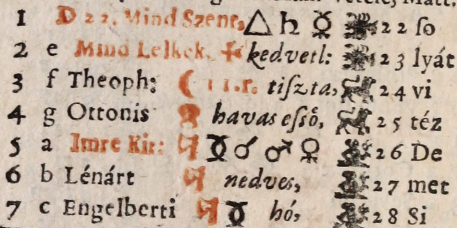 1 D 22. Mind Szent, △ ♄ ☿ 22 ſo
2 e Mind Lelkek. kedvetl: 23 lyát
3 f Theoph: ☾ 11.r. tiſzta, 24 vi
4 g Ottonis havas eſső, 25 téz
5 a Imre Kir: ☌ ♂ ♀ 26 De
6 b Lénárt nedves, 27 met
7 c Engelberti hó, 28 Si